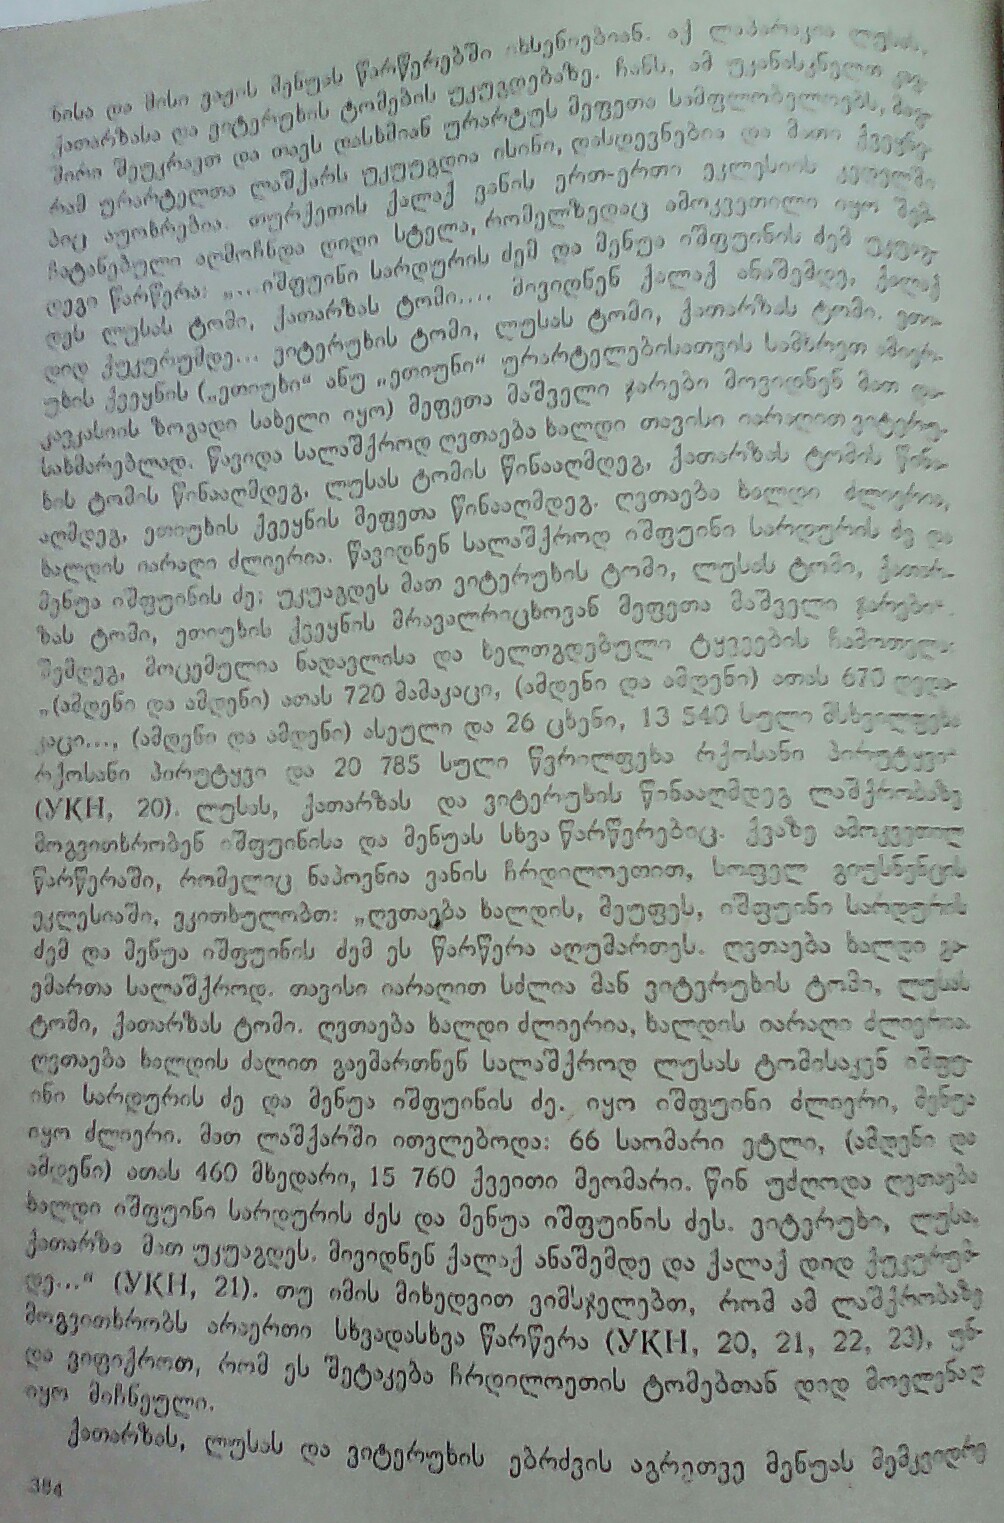 ნისა და მისი ვაჟის მენუას წარწერებში იხსენიებიან. აქ ლაპარაკია ლუსას,
ქათარზასა და ვიტერუხის ტომების უკუგდებაზე. ჩანს, ამ უკანასკნელთ
შირი შეუკრავთ და თავს დასხმიან ურარტუს მეფეთა სამფლობელოებს, მაგ-
რამ ურარტელთა ლაშქარს უკუუგდია ისინი, დასდევნებია და მათი ქვეყნე-
ბიც აუოხრებია. თურქეთის ქალაქ ვანის ერთ-ერთი ეკლესიის კედელში
ჩატანებული აღმოჩნდა დიდი სტელა, რომელზედაც ამოკვეთილი იყო შემ-
დეგი წარწერა: „...იშფუინი სარდურის ძემ და მენუა იშფუინის ძემ უკუაგ-
დეს ლუსას ტომი, ქათარზას ტომი.... მივიდნენ ქალაქ ანაშემდე, ქალაქ
დიდ ქუკურუმდე... ვიტერუხის ტომი, ლუსას ტომი, ქათარზას ტომი. ეთი-
უხის ქვეყნის („ეთიუხი“ ანუ „ეთიუნი“ ურარტელებისათვის სამხრეთ ამიერ-
კავკასიის ზოგადი სახელი იყო) მეფეთა მაშველი ჯარები მოვიდნენ მათ და-
სახმარებლად. წავიდა სალაშქროდ ღვთაება ხალდი თავისი იარაღით ვიტერუ-
ხის ტომის წინააღმდეგ, ლუსას ტომის წინააღმდეგ, ქათარზას ტომის წინა-
აღმდეგ, ეთიუხის ქვეყნის მეფეთა წინააღმდეგ. ღვთაება ხალდი ძლიერია,
ხალდის იარაღი ძლიერია. წავიდნენ სალაშქროდ იშფუინი სარდურის ძე და
მენუა იშფუინის ძე; უკუაგდეს მათ ვიტერუხის ტომი, ლუსას ტომი, ქათარ-
ზას ტომი, ეთიუხის ქვეყნის მრავალრიცხოვან მეფეთა მაშველი ჯარები“.
შემდეგ, მოცემულია ნადავლისა და ხელთგდებული ტყვეების ჩამოთვლა:
„(ამდენი და ამდენი) ათას 720 მამაკაცი, (ამდენი და ამდენი) ათას 670 დედა-
კაცი..., (ამდენი და ამდენი) ასეული და 26 ცხენი, 13 540 სული მსხვილფეხა
რქოსანი პირუტყვი და 20 785 სული წვრილფეხა რქოსანი პირუტყვი“
(УКН, 20). ლუსას, ქათარზას და ვიტერუხის წინააღმდეგ ლაშქრობაზე
მოგვითხრობენ იშფუინისა და მენუას სხვა წარწერებიც. ქვაზე ამოკვეთილ
წარწერაში, რომელიც ნაპოვნია ვანის ჩრდილოეთით, სოფელ გიუსნენცის
ეკლესიაში, ვკითხულობთ: „ღვთაება ხალდის, მეუფეს, იშფუინი სარდურის
ძემ და მენუა იშფუინის ძემ ეს წარწერა აღუმართეს. ღვთაება ხალდი გა-
ემართა სალაშქროდ. თავისი იარაღით სძლია მან ვიტერუხის ტომი, ლუსას
ტომი, ქათარზას ტომი. ღვთაება ხალდი ძლიერია, ხალდის იარაღი ძლიერია.
ღვთაება ხალდის ძალით გაემართნენ სალაშქროდ ლუსას ტომისაკენ იშფუ-
ინი სარდურის ძე და მენუა იშფუინის ძე. იყო იშფუინი ძლიერი, მენუა
იყო ძლიერი. მათ ლაშქარში ითვლებოდა: 66 საომარი ეტლი, (ამდენი და
ამდენი) ათას 460 მხედარი, 15 760 ქვეითი მეომარი. წინ უძღოდა ღვთაება
ხალდი იშფუინი სარდურის ძეს და მენუა იშფუინის ძეს. ვიტერუხი, ლუსა,
ქათარზა მათ უკუაგდეს. მივიდნენ ქალაქ ანაშემდე და ქალაქ დიდ ქუკურუმ-
დე...“ (УКН, 21). თუ იმის მიხედვით ვიმსჯელებთ, რომ ამ ლაშქრობაზე
მოგვითხრობს არაერთი სხვადასხვა წარწერა (УКН, 20, 21, 22, 23), უნ-
და ვიფიქროთ, რომ ეს შეტაკება ჩრდილოეთის ტომებთან დიდ მოვლენად
იყო მიჩნეული.
ქათარზას, ლუსას და ვიტერუხის ებრძვის აგრეთვე მენუას მემკვიდრე
384